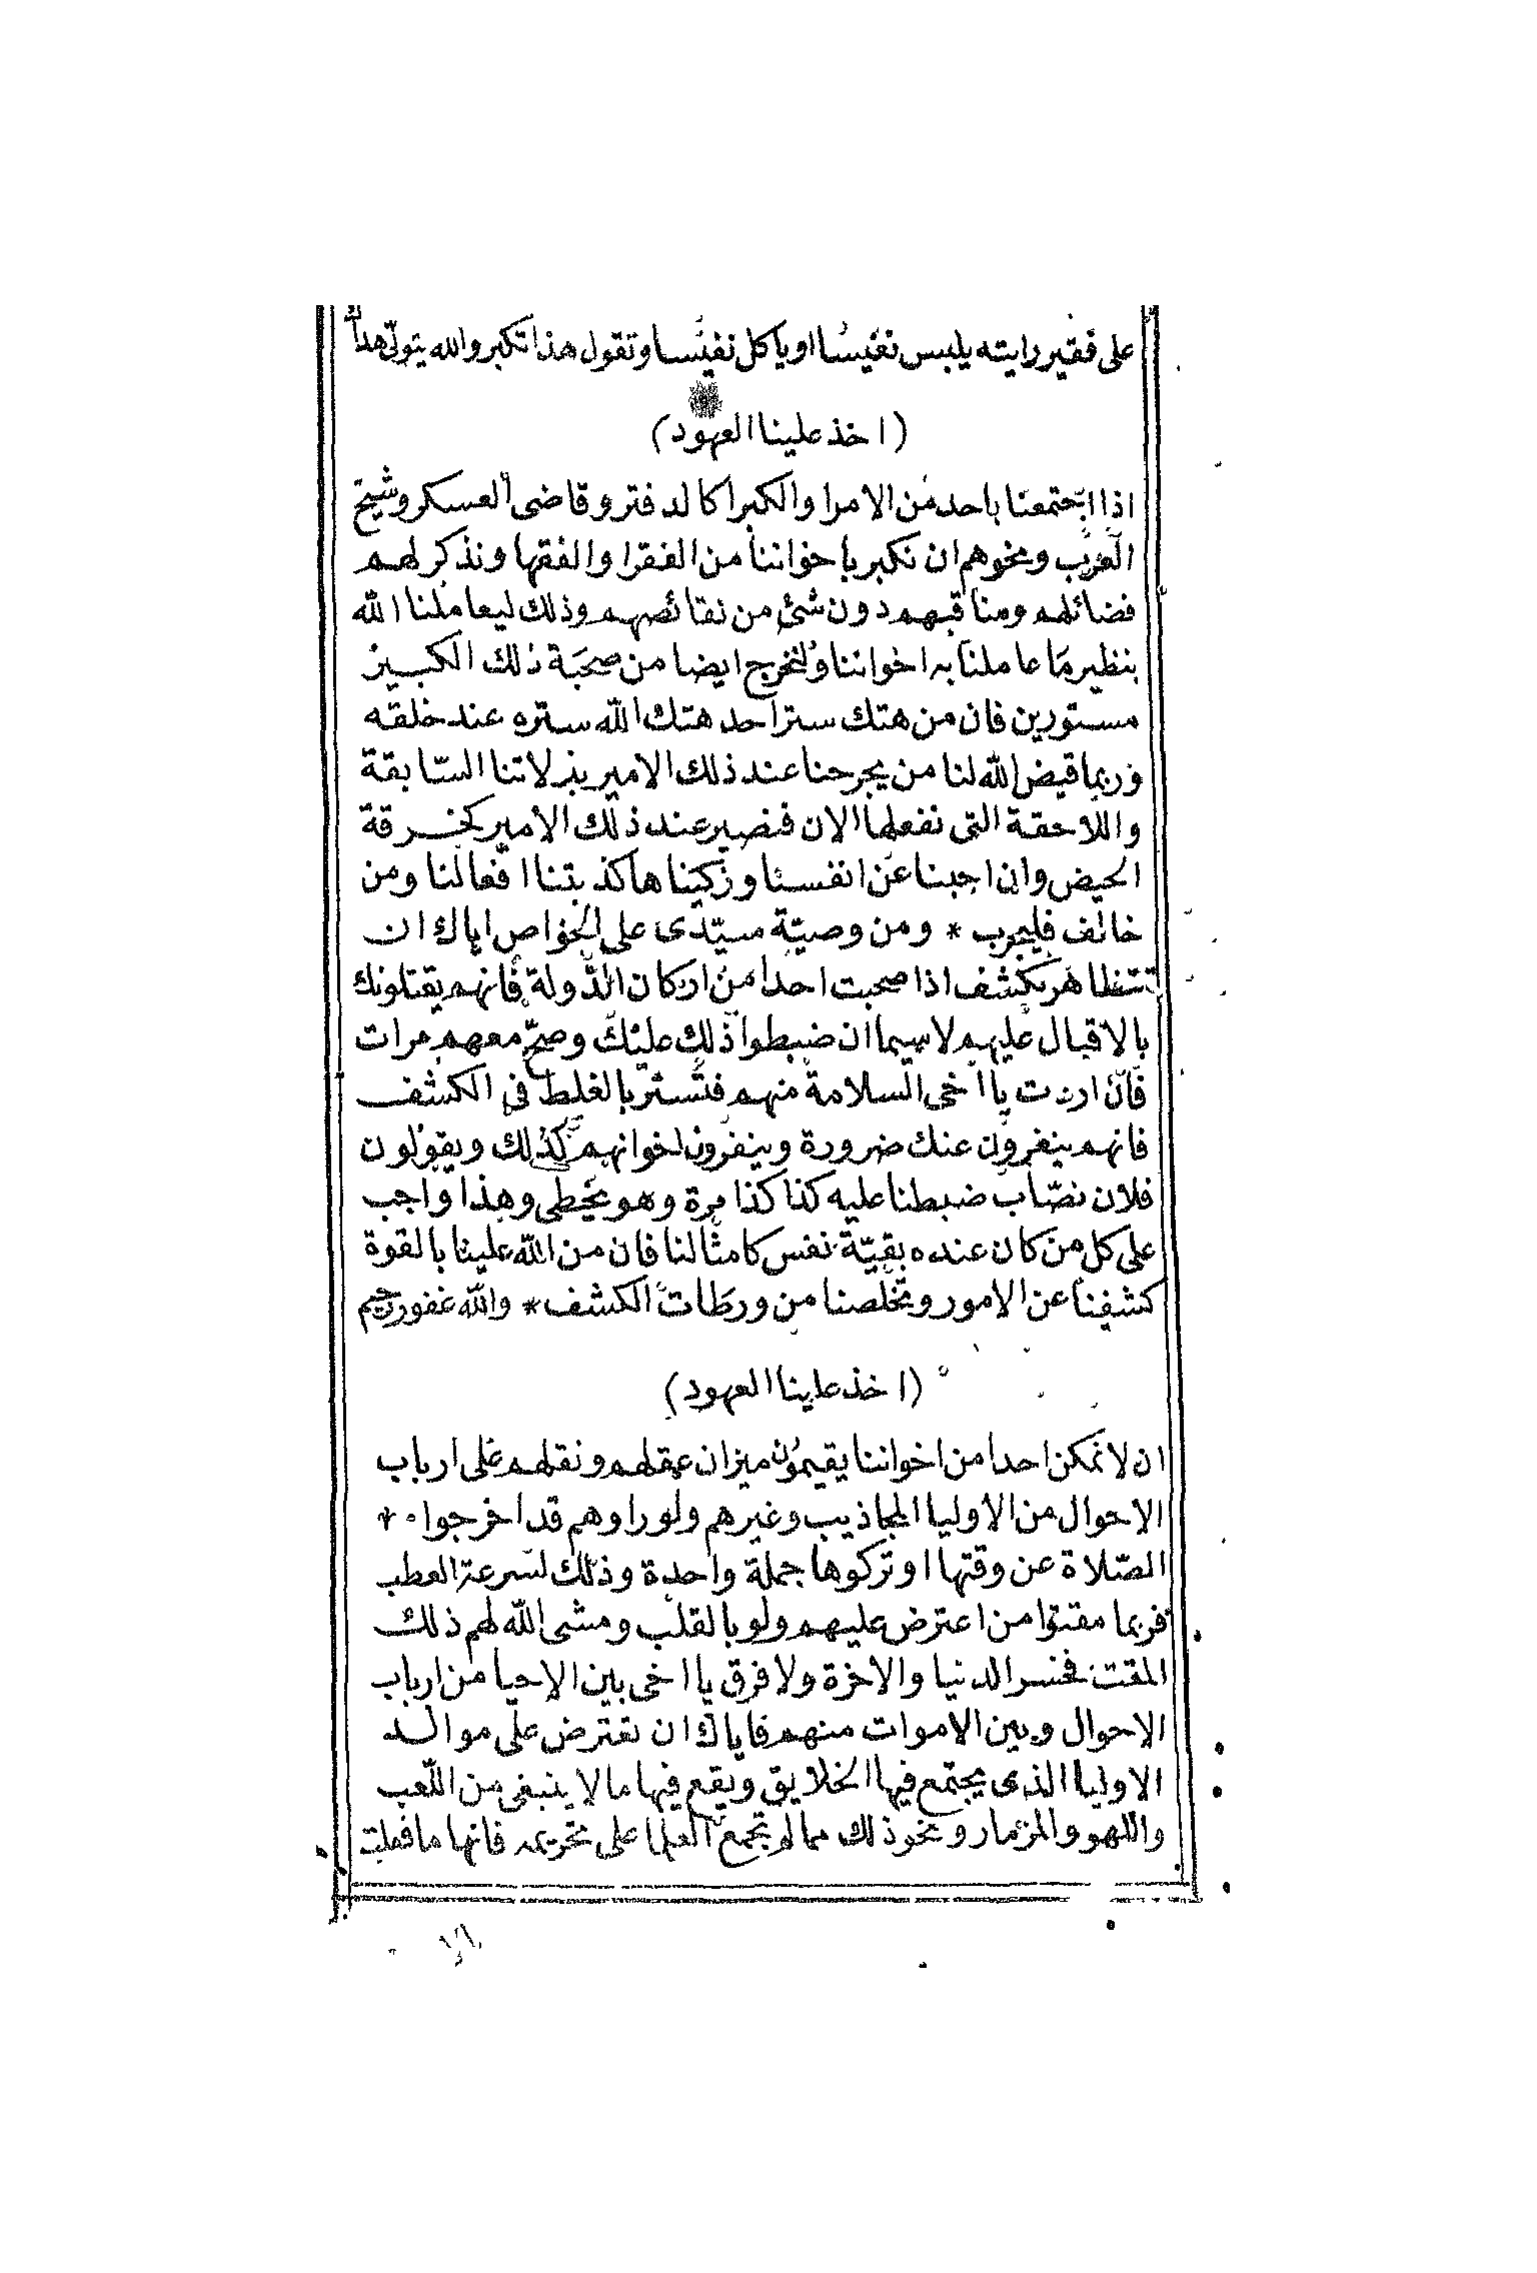 على فقير رايته يلبس نفيسا او ياكل نفيسا وتقول هذا تكبر والله يتولى هداك
(اخذ علينا العهود)
اذا اجتمعنا باحد من الامرا والكبرا كالدفتر وقاضى العسكر وشيخ
العرب ونحوهم ان نكبر باخواننا من الفقرا والفقها ونذكر لهم
فضائلهم ومناقبهم دون شئ من نقائصهم وذلك ليعاملنا الله
بنظير ما عاملنا به اخواننا ولنخرج ايضا من صحبة ذلك الكبير
مستورين فان من هتك ستر احد هتك الله ستره عند خلقه
وربما قيض الله لنا من يجرحنا عند ذلك الامير بزلاتنا السابقة
واللاحقة التى نفعلها الان فنصير عند ذلك الامير كخرقة
الحيض وان اجبنا عن انفسنا وزكيناها كذبتنا افعالنا ومن
خالف فليجرب * ومن وصية سيدى على الخواص اياك ان
تتظاهر بكشف اذا صحبت احدا من اركان الدولة فانهم يقتلونك
بالاقبال عليهم لاسيما ان ضبطوا ذلك عليك وصح معهم مرات
فان اردت يا اخى السلامة منهم فتستر بالغلط فى الكشف
فانهم ينفرون عنك ضرورة وينفرون اخوانهم كذلك ويقولون
فلان نصاب ضبطنا عليه كذا كذا مرة وهو يخطى وهذا واجب
على كل من كان عنده بقية نفس كامثالنا فان من الله علينا بالقوة
كشفنا عن الامور وتخلصنا من ورطات الكشف * والله غفور رحيم
(اخذ علينا العهود)
ان لا نمكن احدا من اخواننا يقيمون ميزان عقلهم ونقلهم على ارباب
الاحوال من الاوليا المجاذيب وغيرهم ولو راوهم قد اخرجوا
الصلاة عن وقتها او تركوها جملة واحدة وذلك لسرعة العطب
فربما مقتوا من اعترض عليهم ولو بالقلب ومشى الله لهم ذلك
المقت فخسر الدنيا والاخرة ولا فرق يا اخى بين الاحيا من ارباب
الاحوال وبين الاموات منهم فاياك ان تعترض على موالد
الاوليا الذى يجتمع فيها الخلايق ويقع فيها ما لا ينبغى من اللعب
واللهو والمزمار ونحو ذلك مما لم تجمع العلما على تحريمه فانها ما فعلت